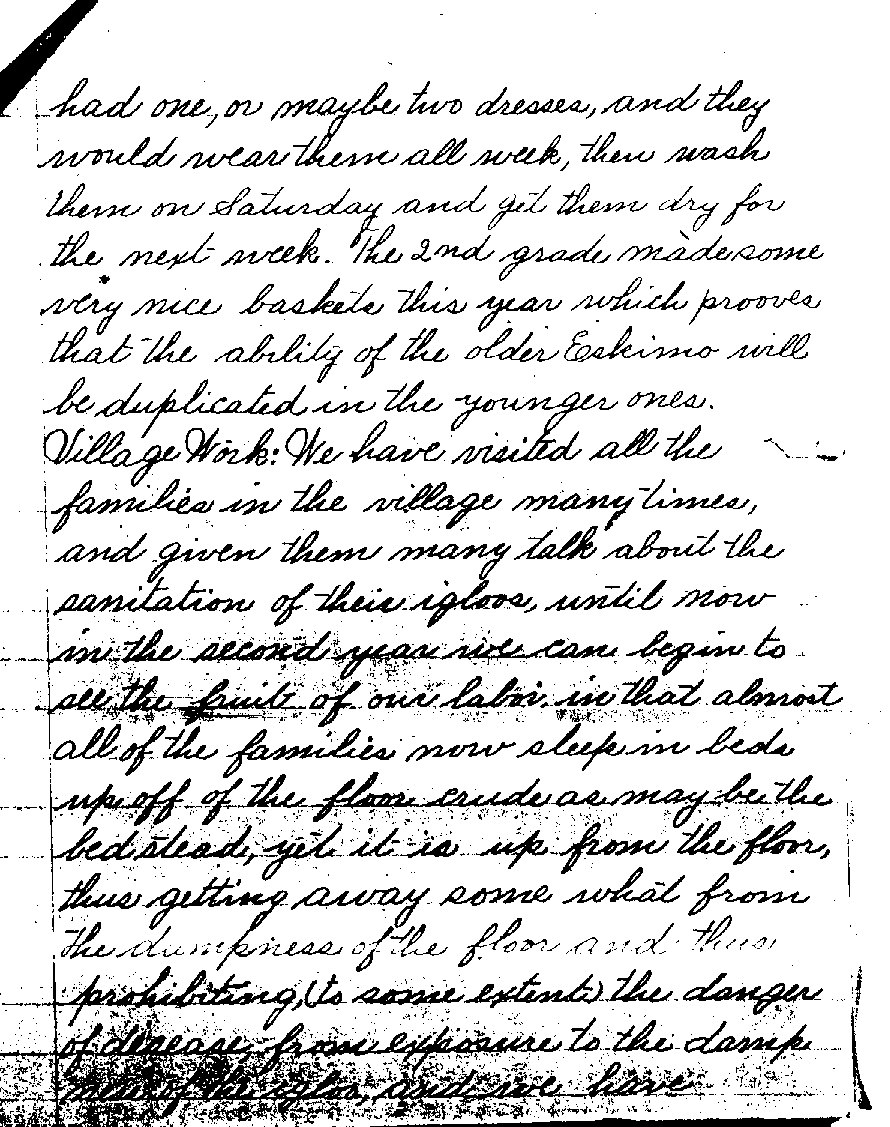 had one, or maybe two dresses, and they
would wear them all week, then wash
them on Saturday and get them dry for
the next week. The 2nd grade made some
very nice baskets this year which prooves
that the ability of the older Eskimo will
be duplicated in the younger ones.
Village Work: We have visited all the
families in the village many times,
and given them many talk about the
sanitation of their igloos, until now
in the second year we can begin to
see the fruit of our labor in that almost
all of the families now sleep in beds
up off of the floor crude as may be the
bed stead, yet it is up from the floor,
thus getting away some what from
the dumpness of the floor and thus
prohibiting, (to some extent) the danger
of desease, from exposure to the damp
ness of the igloo, and we have